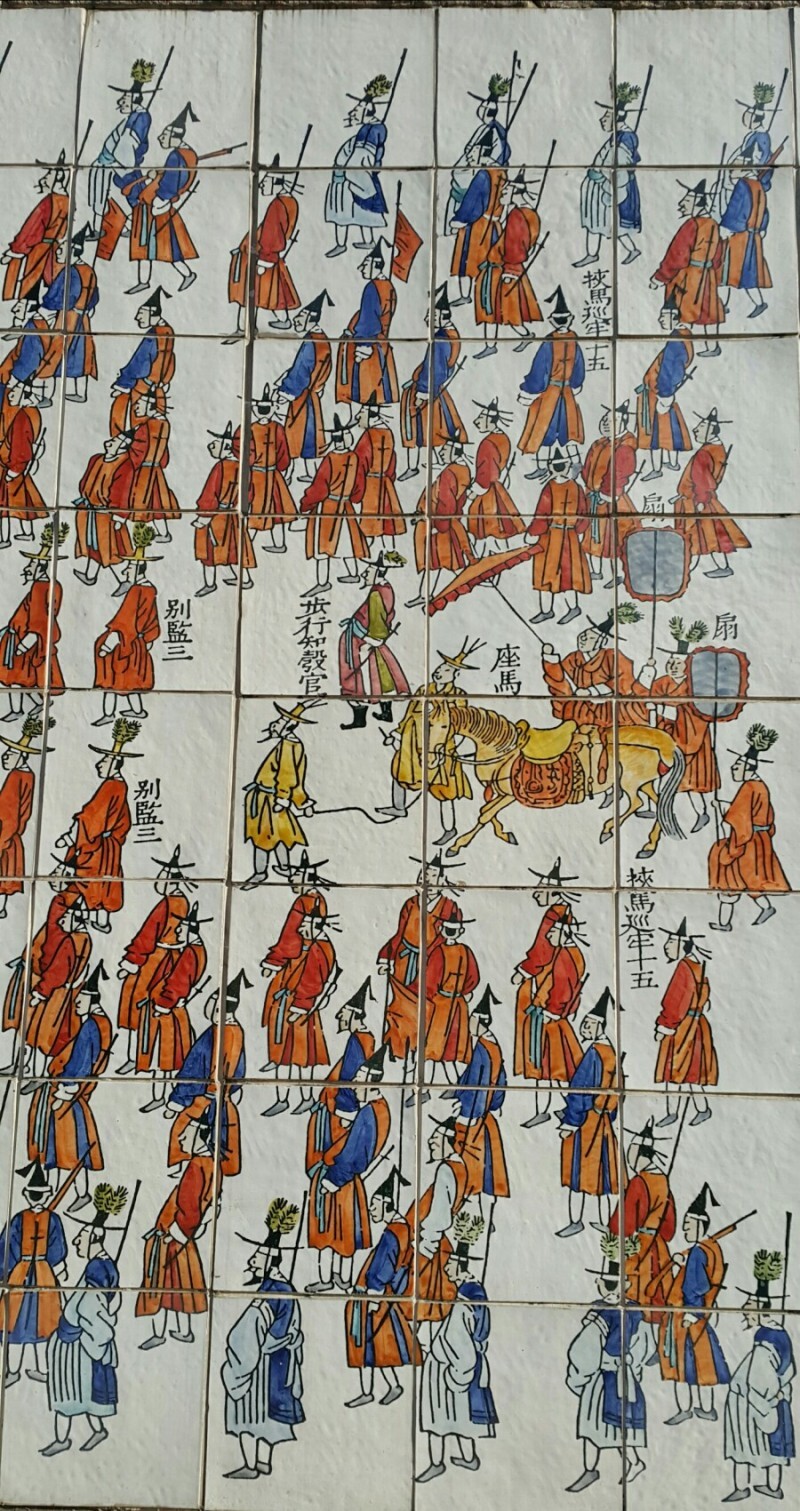 挾馬巡牢十五
扇
扇
座馬
步行知彀官
别監三
别監三
挾馬巡牢十五